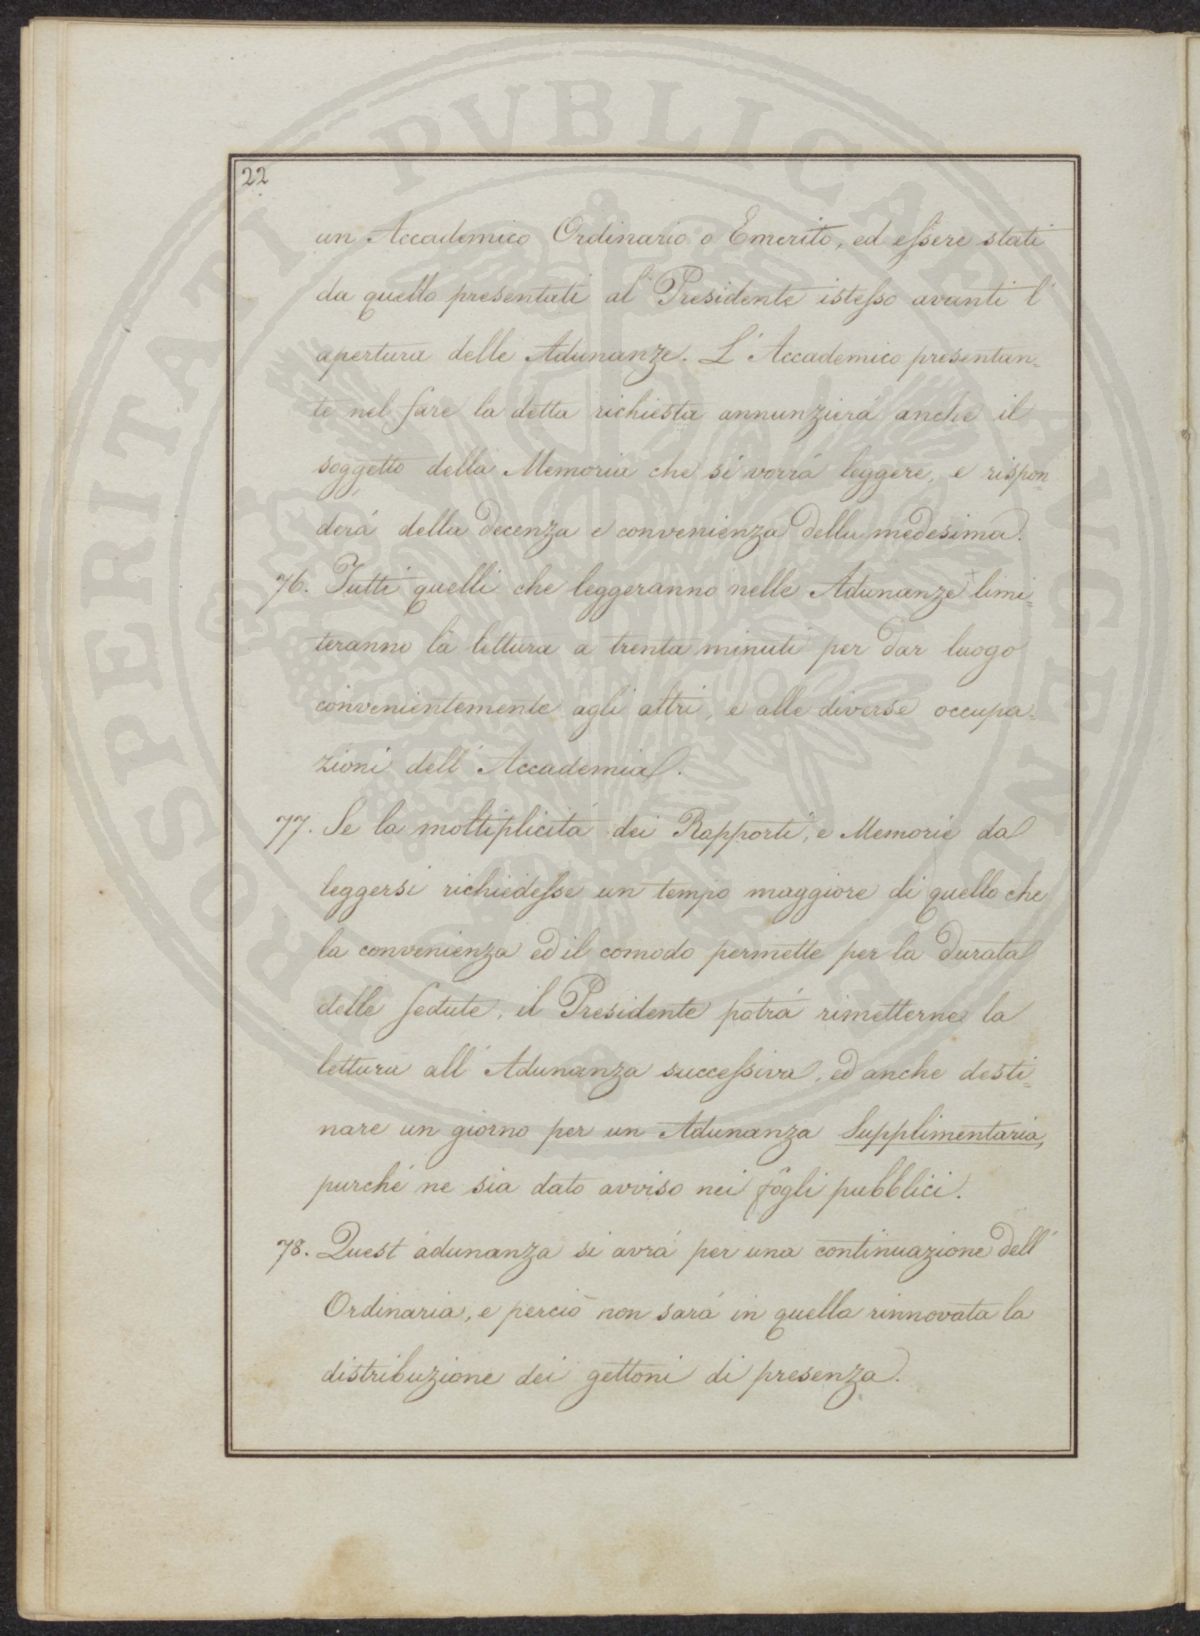 22
un Accademico Ordinario o Emerito, ed essere stati
da quello presentati al Presidente istesso avanti l'
apertura delle Adunanze. L'Accademico presentan-
te nel fare la detta richiesta annunzierá anche il
soggetto della Memoria che si vorrá leggere, e rispon-
derá della decenza e convenienza della medesima.
76. Tutti quelli che leggeranno nelle Adunanze limi-
teranno la lettura a trenta minuti per dar luogo
convenientemente agli altri, e alle diverse occupa-
zioni dell'Accademia.
77. Se la moltiplicitá dei Rapporti, e Memorie da
leggersi richiedesse un tempo maggiore di quello che
la convenienza ed il comodo permette per la durata
delle sedute, il Presidente potrá rimetterne la
lettura all'Adunanza successiva, ed anche desti-
nare un giorno per un Adunanza Supplimentaria,
purché ne sia dato avviso nei fogli pubblici.
78. Quest'adunanza si avrá per una continuazione dell'
Ordinaria, e perció non sará in quella rinnovata la
distribuzione dei gettoni di presenza.
PROSPERITATI PUBLICAE AUGENDAE